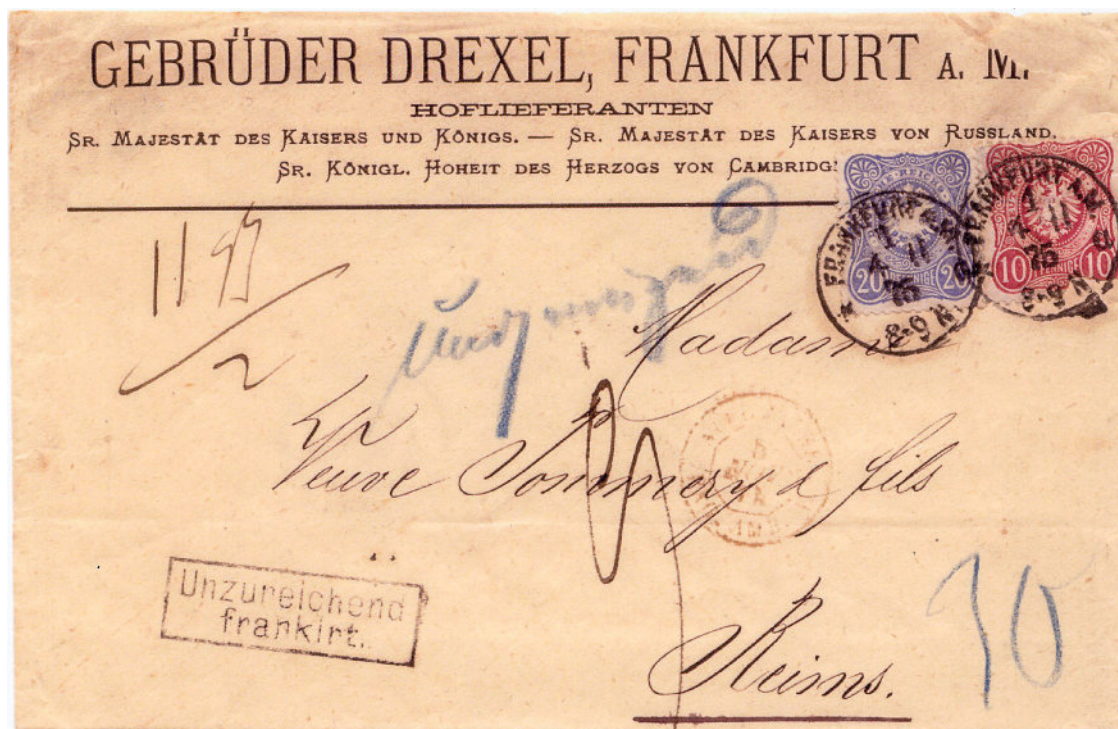 GEBRÜDER DREXEL, FRANKFURT A. M.
HOFLIEFERANTEN
SR. MAJESTÄT DES KAISERS UND KÖNIGS. — SR. MAJESTÄT DES KAISERS VON RUSSLAND.
SR. KÖNIGL. HOHEIT DES HERZOGS VON CAMBRIDG
20 PFENNIGE 20
10 PFENNIGE 10
FRANKFURT A.M.
1
4 11
75
8-9 N
FRANKFURT A.M.
1
4 11
75
8-9 N
Madame
Veuve Pommery & fils
Reims.
Unzureichend
frankirt.
30